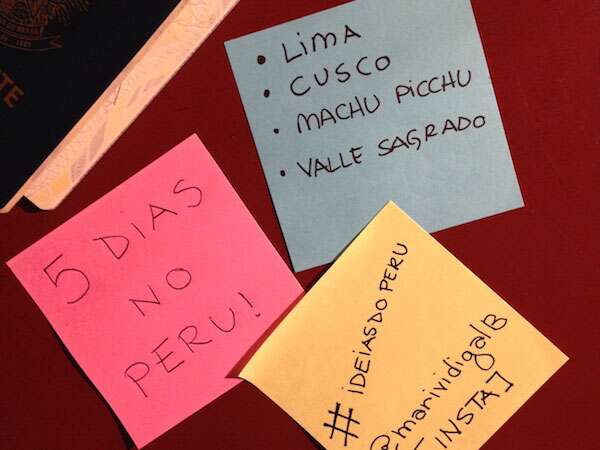 • LIMA
• CUSCO
• MACHU PICCHU
• VALLE SAGRADO
5 DIAS
NO
PERU!
#IDEIASDOPERU
@marividigalB
[INSTA]